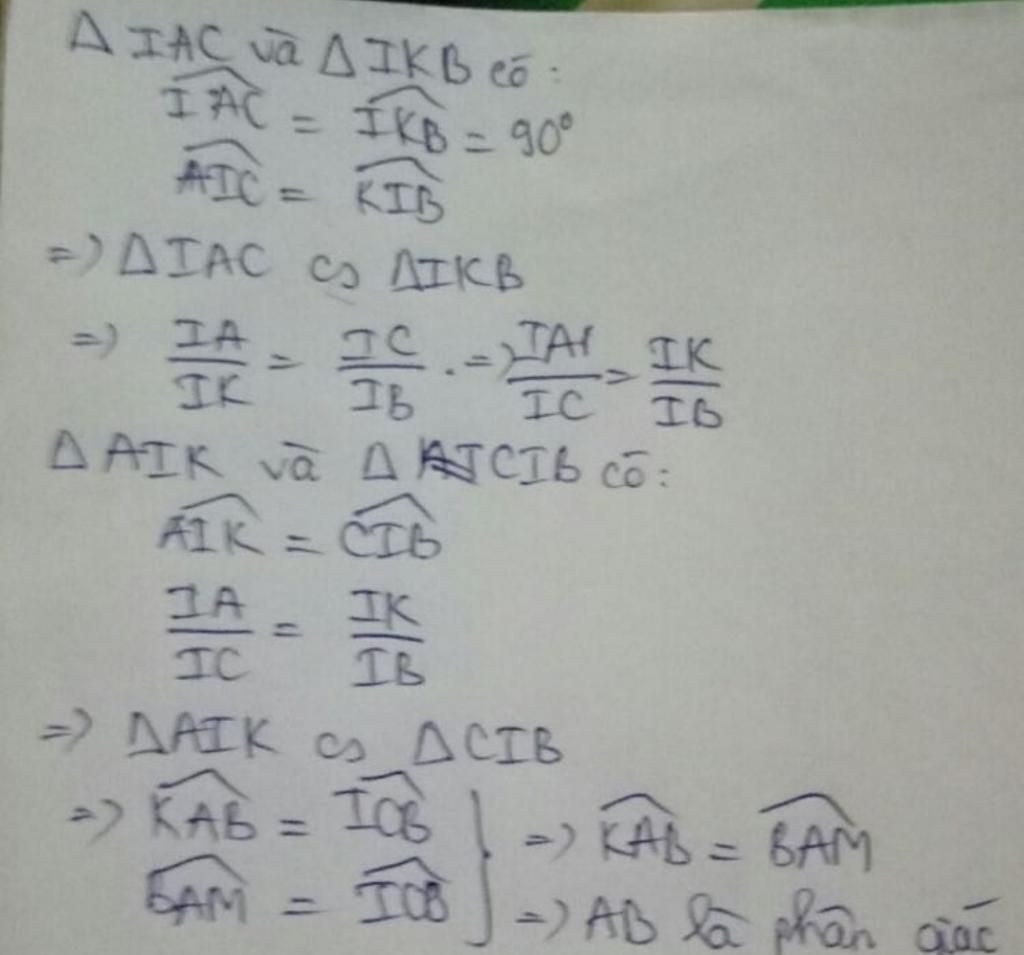 Δ IAC và Δ IKB có :
\widehat{IAC} = \widehat{IKB} = 90°
\widehat{AIC} = \widehat{KIB}
=> Δ IAC ∽ Δ IKB
=> \frac{IA}{IK} = \frac{IC}{IB} . => \frac{IA}{IC} = \frac{IK}{IB}
Δ AIK và Δ CIB có :
\widehat{AIK} = \widehat{CIB}
\frac{IA}{IC} = \frac{IK}{IB}
=> Δ AIK ∽ Δ CIB
=> \widehat{KAB} = \widehat{ICB} } => \widehat{KAB} = \widehat{BAM}
\widehat{BAM} = \widehat{ICB} } => AB là phân giác